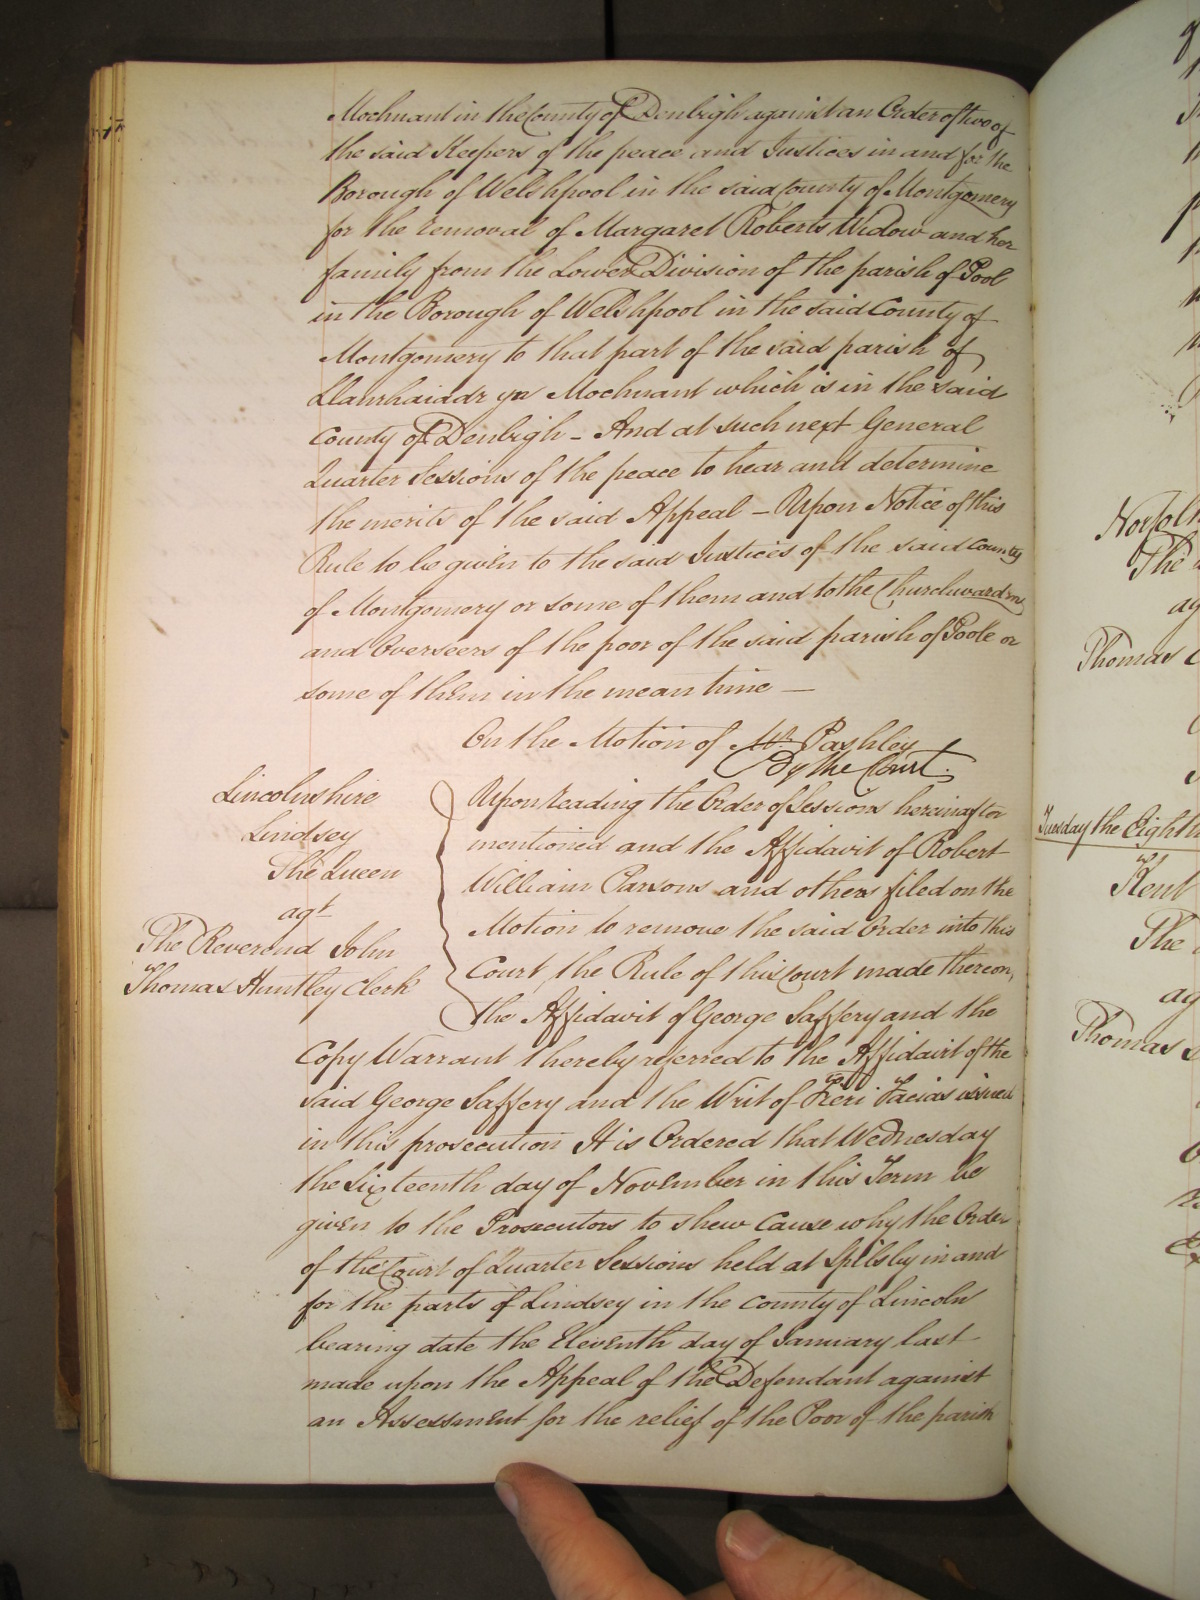 Mochnant in the County of Denbigh against an Order of two of
the said Keepers of the peace and Justices in and for the
Borough of Welshpool in the said County of Montgomery
for the removal of Margaret Roberts Widow and her
family from the Lower Division of the parish of Pool
in the Borough of Welshpool in the said County of
Montgomery to that part of the said parish of
Llanrhaiadr yn Mochnant which is in the said
County of Denbigh – And at such next General
Quarter Sessions of the peace to hear and determine
the merits of the said Appeal – Upon Notice of this
Rule to be given to the said Justices of the said County
of Montgomery or some of them and to the Churchwardens
and Overseers of the poor of the said parish of Poole or
some of them in the mean time —
On the Motion of Mr. Pashley
By the Court.
Lincolnshire
Lindsey
The Queen
agt
The Reverend John
Thomas Huntley Clerk
Upon reading the Order of Sessions hereinafter
mentioned and the Affidavit of Robert
William Parsons and others filed on the
Motion to remove the said Order into this
Court, the Rule of this Court made thereon,
the Affidavit of George Saffery and the
Copy Warrant thereby referred to the Affidavit of the
said George Saffery and the Writ of Fieri Facias issued
in this prosecution It is Ordered that Wednesday
the Sixteenth day of November in this Term be
given to the Prosecutors to shew Cause why the Order
of the Court of Quarter Sessions held at Spilsby in and
for the parts of Lindsey in the County of Lincoln
bearing date the Eleventh day of January last
made upon the Appeal of the Defendant against
an Assessment for the relief of the Poor of the parish
The
ag
Thomas
Tuesday the Eighth
Kent
The
ag
Thomas